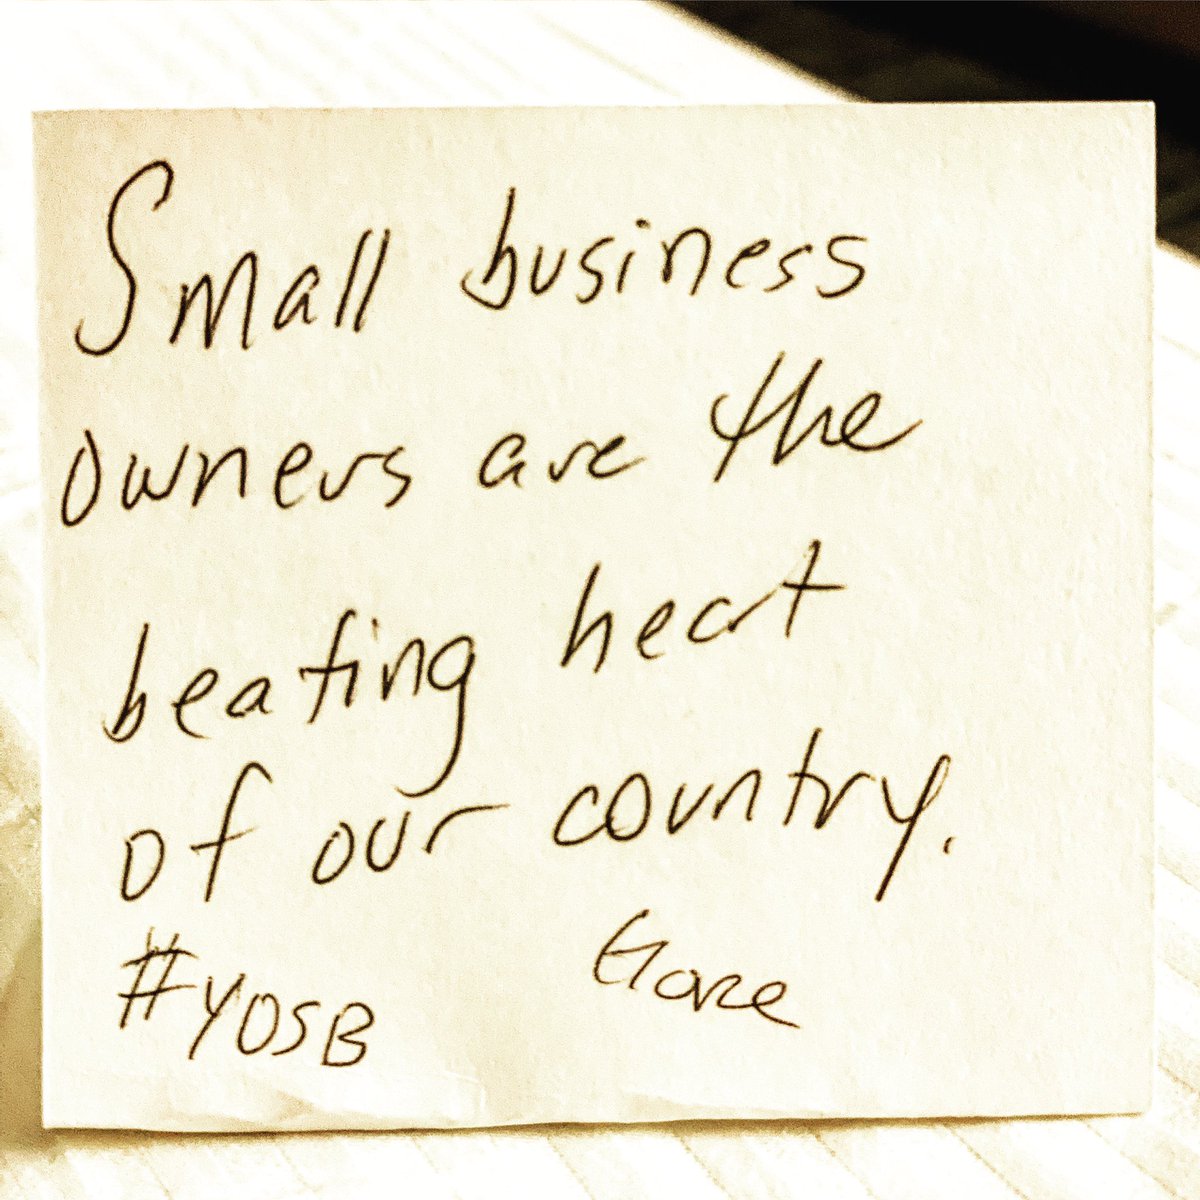 Small business
owners are the
beating heart
of our country.
#YOSB